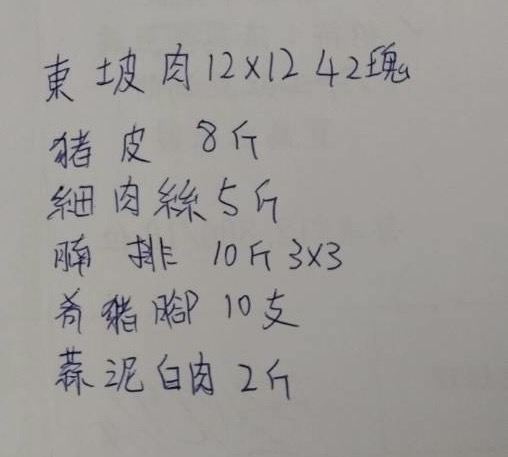 東坡肉12×12 42塊
豬皮 8斤
細肉絲5斤
腩排 10斤3×3
豬腳 10支
蒜泥白肉 2斤